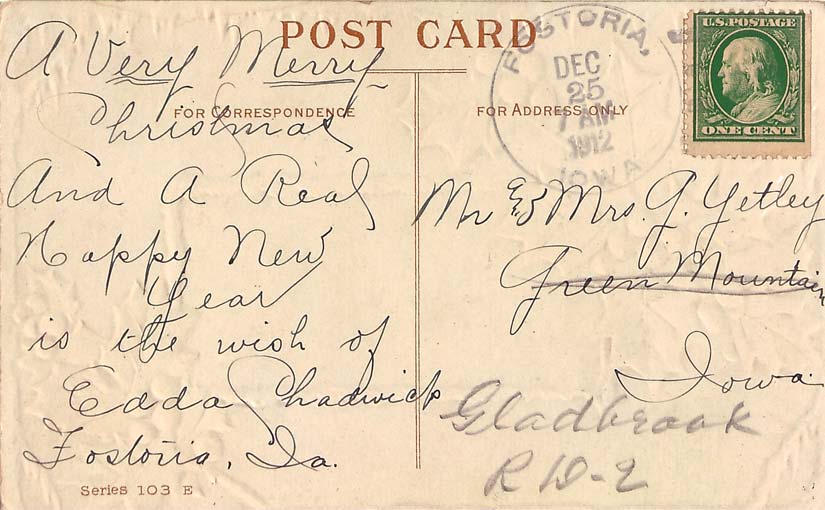 POST CARD
FOR CORRESPONDENCE
A Very Merry
Christmas
And A Real
Happy New
Year
is the wish of
Edda Shadwick
Fostoria, Ia.
Series 103 E
FOR ADDRESS ONLY
FOSTORIA,
DEC
25
7 AM
1912
IOWA
U.S. POSTAGE
ONE CENT
Mr & Mrs. J. Yetley
Green Mountain
Iowa
Gladbrook
R D-2